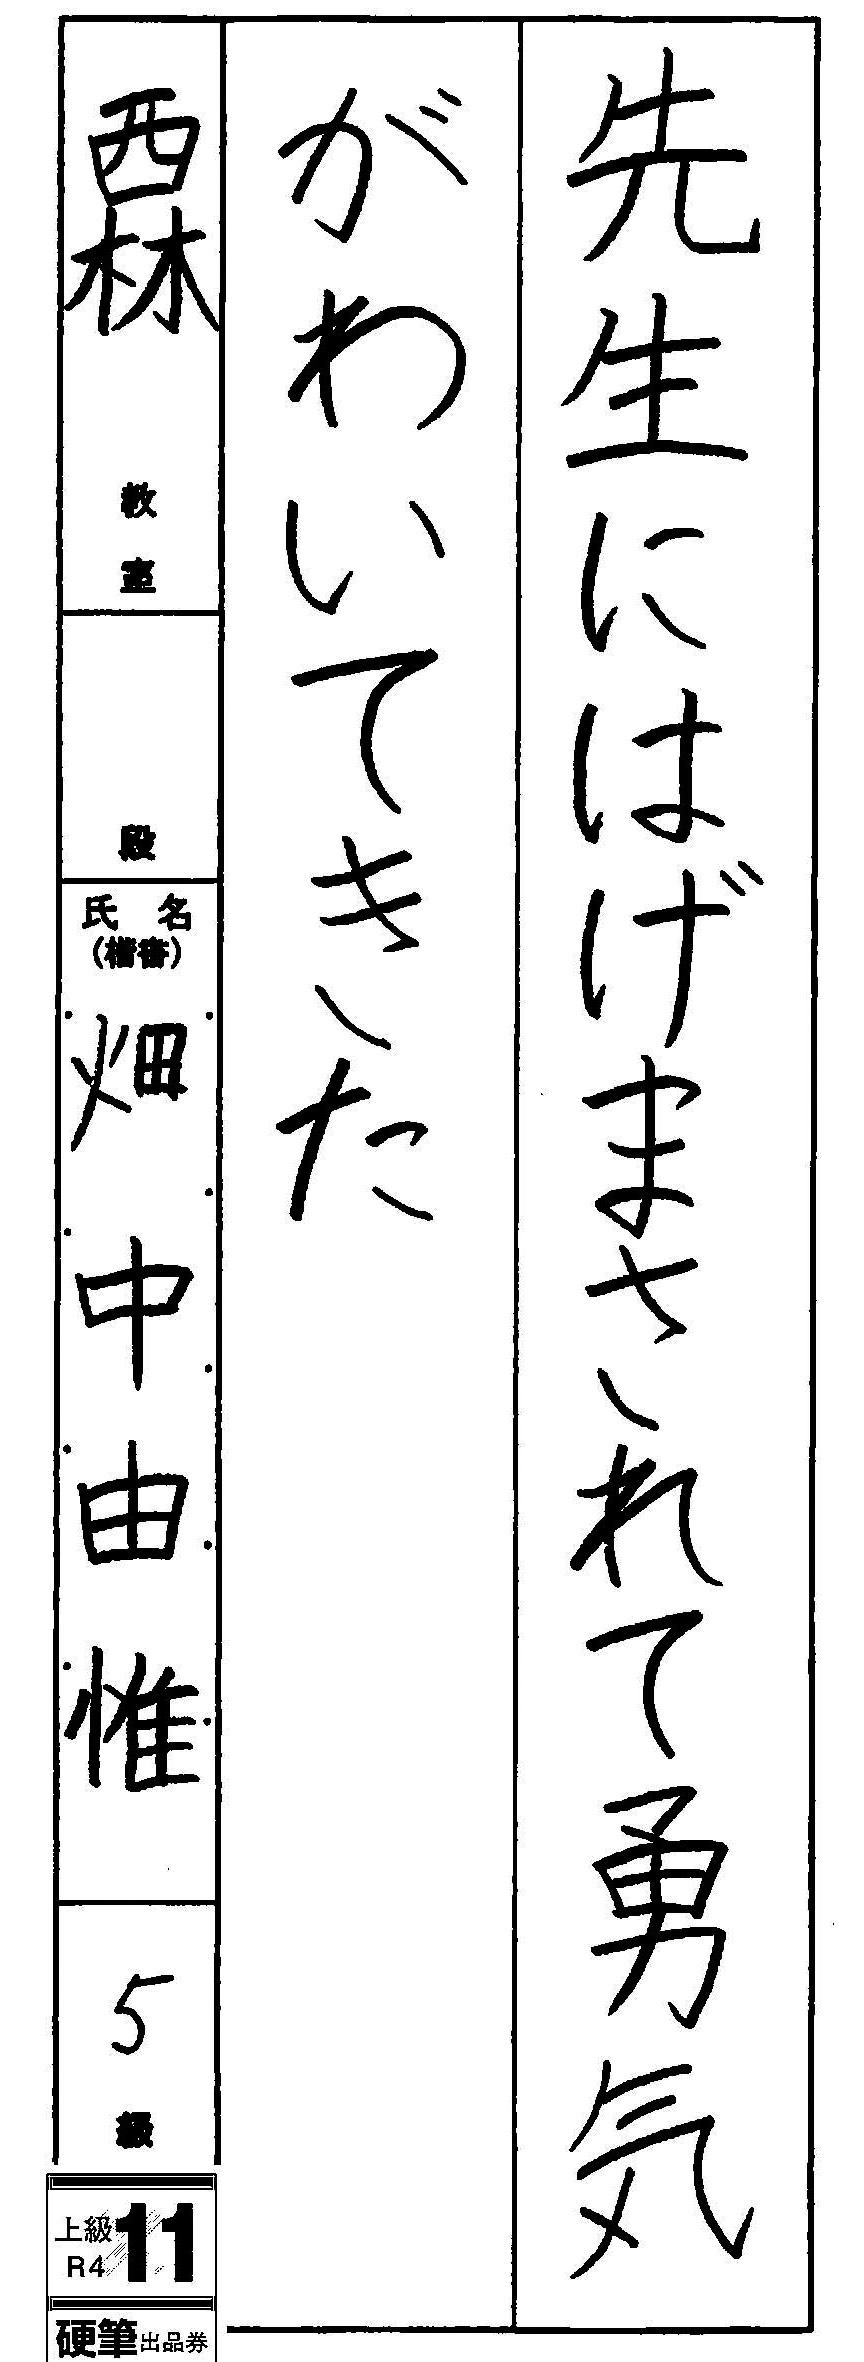 先生にはげまされて勇気
がわいてきた
西林
教室
段
氏名
(楷書)
畑中由惟
5
級
上級
R4
11
硬筆出品券